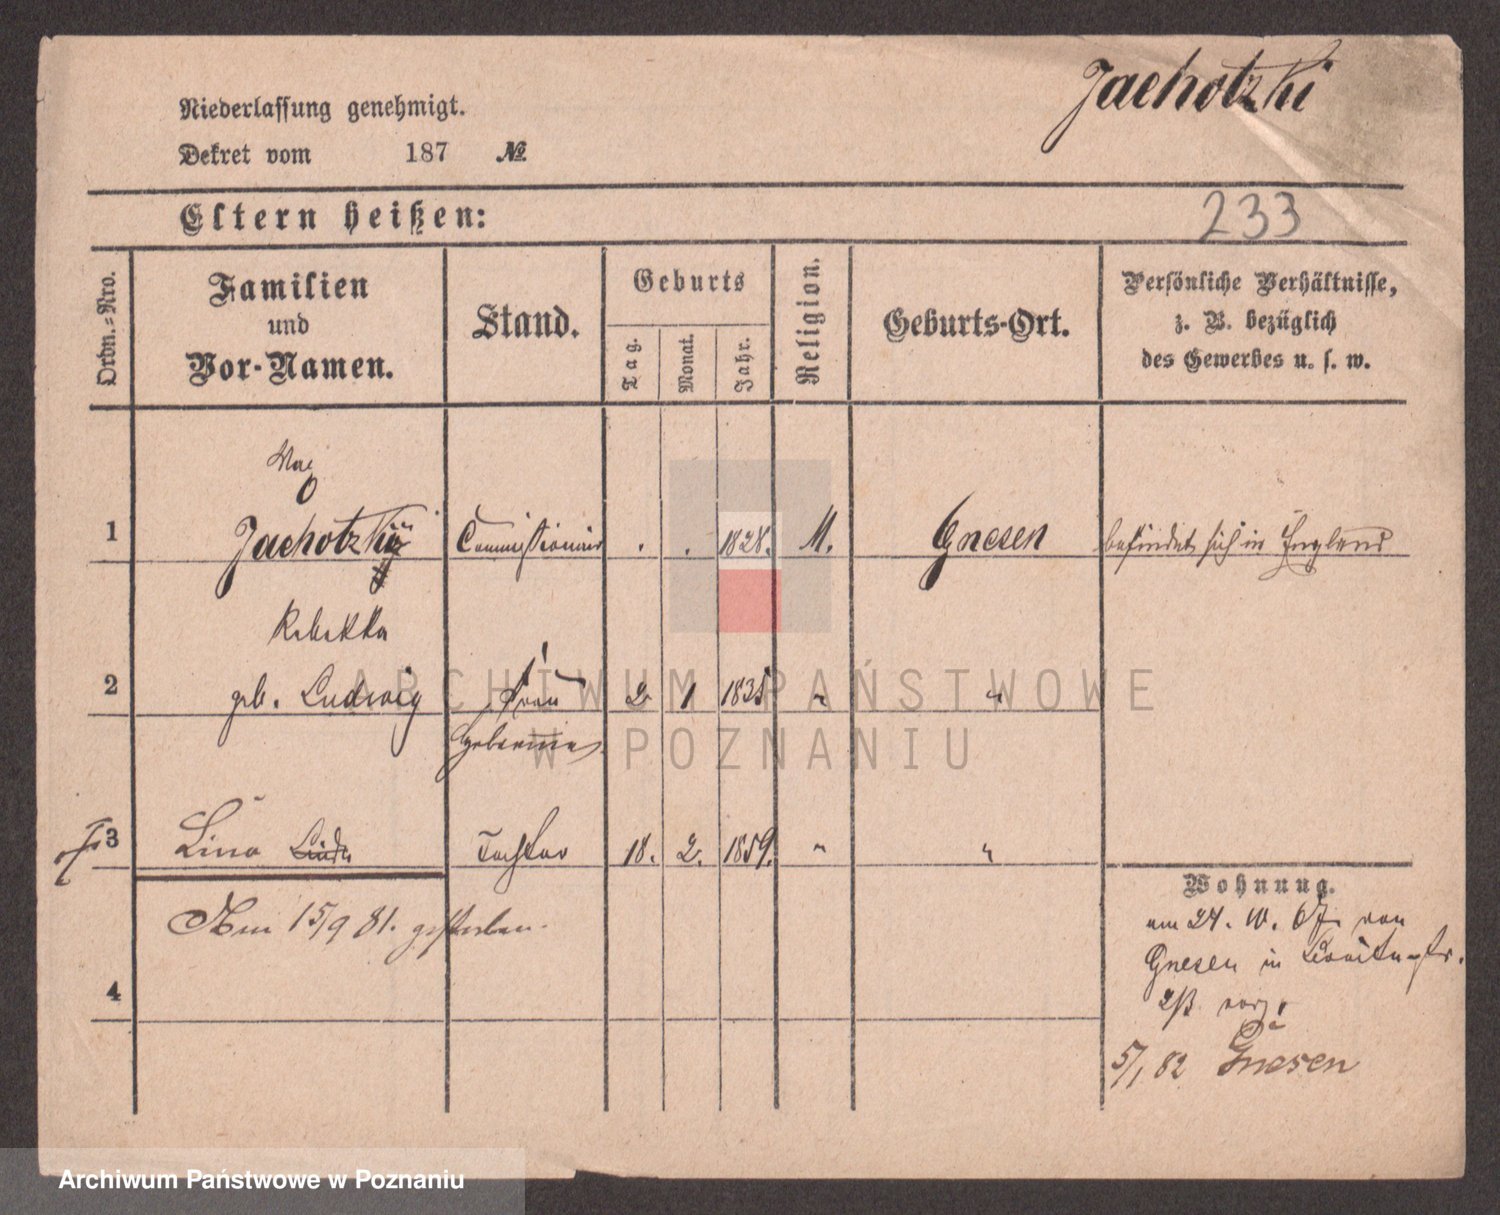 Jachotzki
Niederlassung genehmigt.
Dekret vom 187 №
Eltern heißen:
233
Ordn.=Nro.
Familien
und
Vor-Namen.
Stand.
Geburts
Tag.
Monat.
Jahr.
Religion.
Geburts-Ort.
Persönliche Verhältnisse,
z. B. bezüglich
des Gewerbes u. s. w.
1 Jachotzki Commissionair . . 1828. M. Gnesen befindet sich in England
Rebekka
2 geb. Ludwig Frau 2 1 1835 " "
3 Lina Tochter 18. 2. 1859. " "
Am 15/9 81. gestorben.
4
Wohnung.
am 24. 10. 67 von
Gnesen in
5/1 82 Gnesen
ARCHIWUM PAŃSTWOWE
W POZNANIU
Archiwum Państwowe w Poznaniu